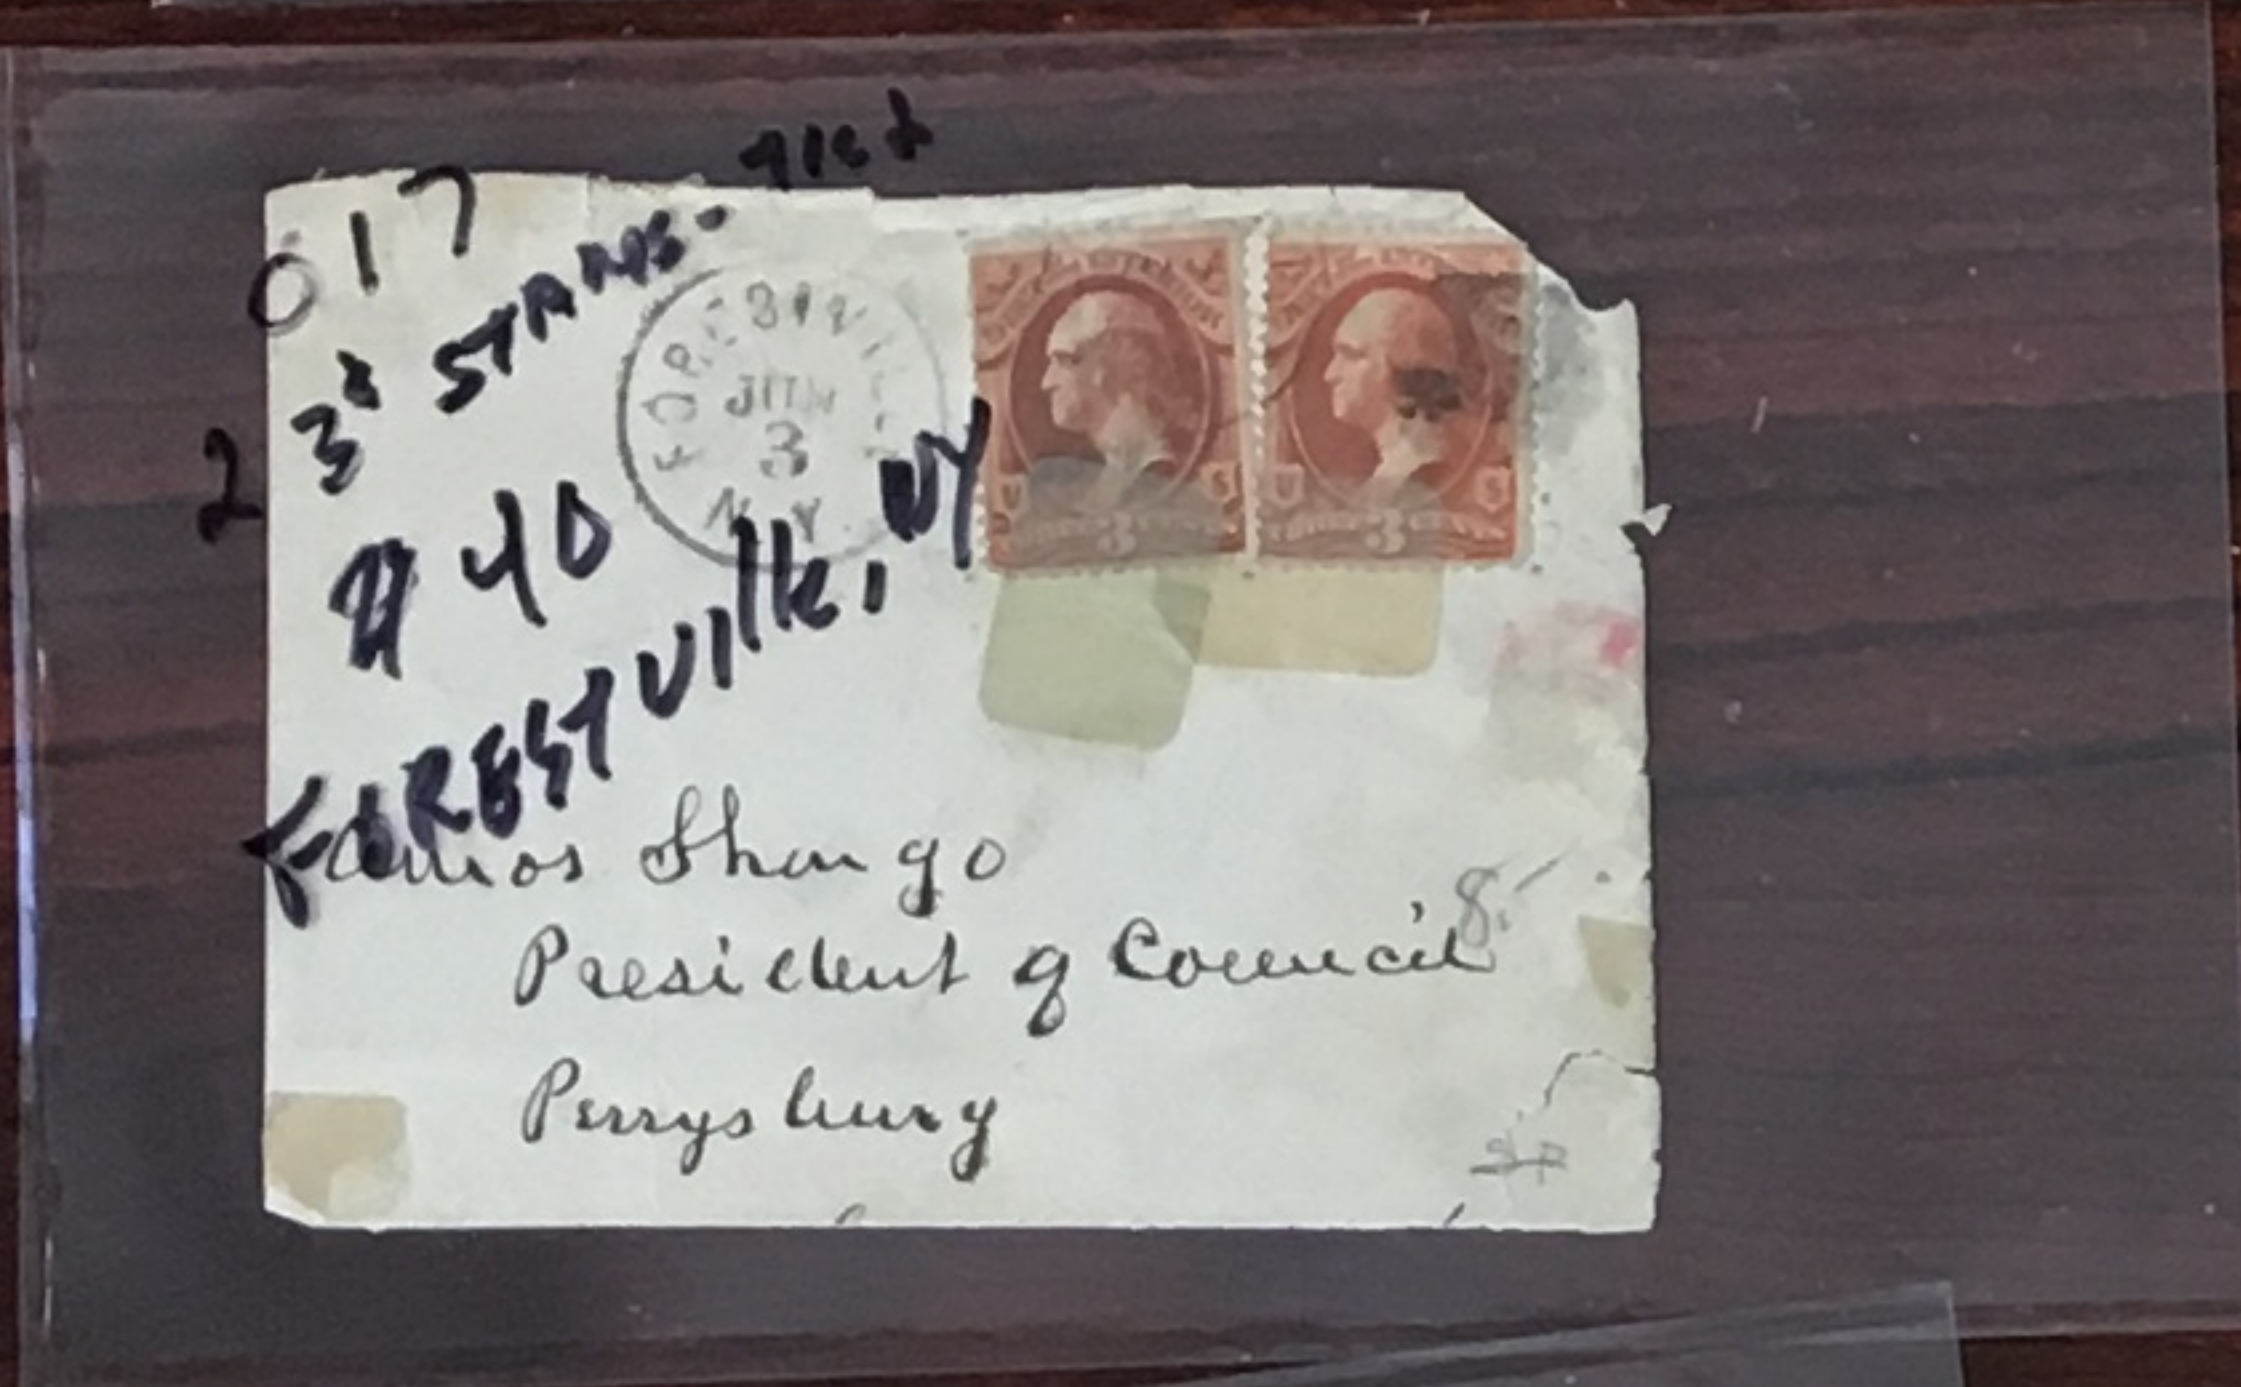 017
2 3¢ STAMPS.
$40
FORESTVILLE, NY
FORESTVILLE
JUN
3
N.Y.
U S
THREE 3 CENTS
U S
THREE 3 CENTS
Amos Shongo
President of Council
8.
Perrysburg